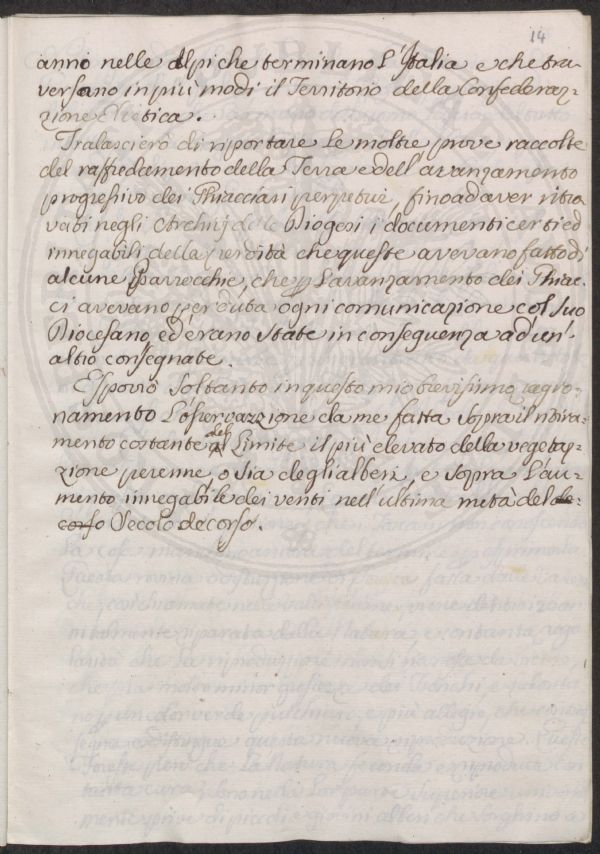 14
anno nelle Alpi che terminano L'Italia e che tra
versano in più modi il Territorio della Confederaz=
zione Elvetica.
Tralascierò di riportare Le moltre prove raccolte
del raffredamento della Terra e dell'avanzamento
progressivo dei Ghiacciari perpetui, fino ad aver ritro
vati negli Archivj delle Diogesi i documenti certi ed
innegabili della perdita che queste avevano fatto di
alcune parrocchie, che p L'avanzamento dei Ghiac=
ci avevano perduta ogni comunicazione col Suo
Diocesano ed erano state in conseguenza ad un'
altro consegnate.
Esporrò Soltanto in questo mio brevissimo ragio=
namento L'ossservazzione da me fatta Sopra il ritira=
mento costante del Limite il più elevato della vegetaz=
zione perenne, o sia degli alberi, e sopra L'au=
mento innegabile dei venti nell'ultima metà del de=
corso Secolo decorso.